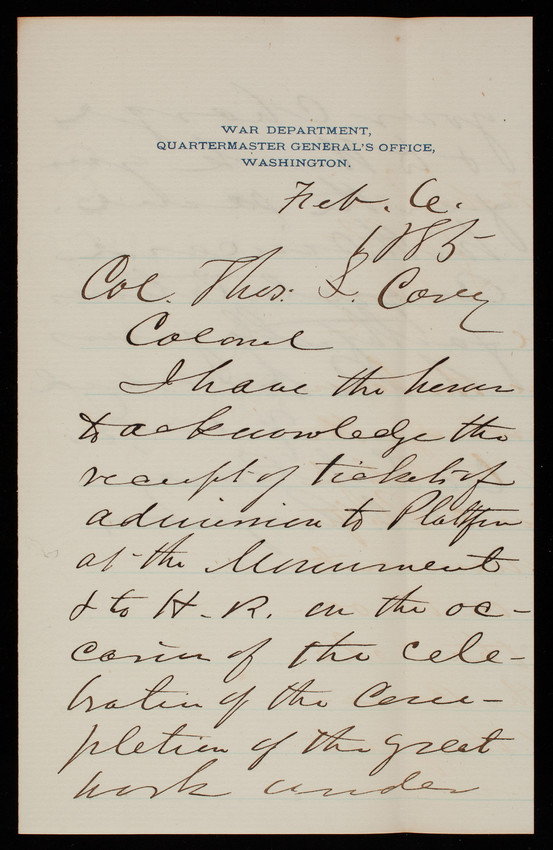 WAR DEPARTMENT,
QUARTERMASTER GENERAL'S OFFICE,
WASHINGTON.
Feb. 6.
1885
Col. Thos. L. Casey
Colonel
I have the honor
to acknowledge the
receipt of tickets of
admission to Platfm
at the Monument
& to H. R. on the oc-
casion of the cele-
bration of the Com-
pletion of the great
work under